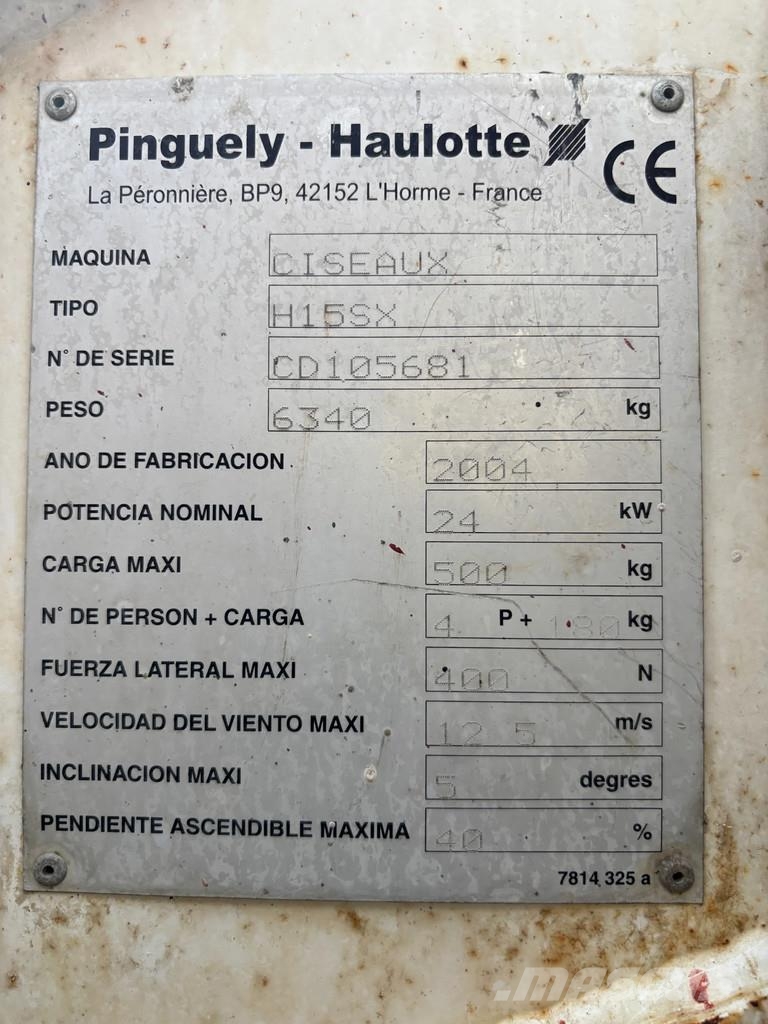 Pinguely - Haulotte
CE
La Péronnière, BP9, 42152 L'Horme - France
MAQUINA CISEAUX
TIPO H15SX
N° DE SERIE CD105681
PESO 6340 kg
ANO DE FABRICACION 2004
POTENCIA NOMINAL 24 kW
CARGA MAXI 500 kg
N° DE PERSON + CARGA 4 P + 180 kg
FUERZA LATERAL MAXI 400 N
VELOCIDAD DEL VIENTO MAXI 12 5 m/s
INCLINACION MAXI 5 degres
PENDIENTE ASCENDIBLE MAXIMA 40 %
7814 325 a